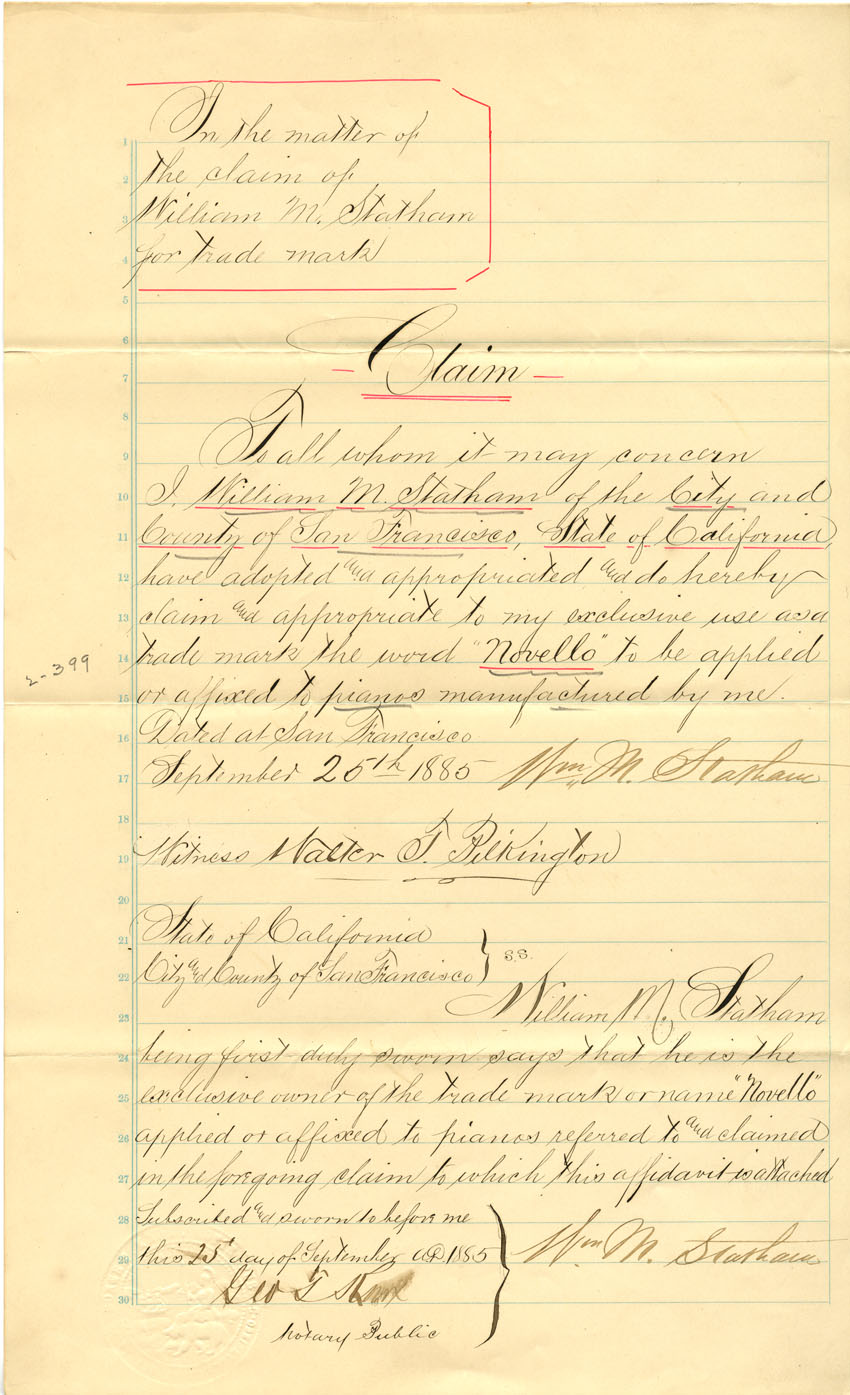 In the matter of
the claim of
William M. Statham
for trade mark
Claim
To all whom it may concern
I, William M. Statham of the City and
County of San Francisco, State of California,
have adopted and appropriated and do hereby
claim and appropriate to my exclusive use as a
trade mark the word "Novello" to be applied
or affixed to pianos manufactured by me.
2-399
Dated at San Francisco
September 25th 1885 Wm M. Statham
Witness Walter T. Pilkington
State of California
City and County of San Francisco } S.S.
William M. Statham
being first duly sworn says that he is the
exclusive owner of the trade mark or name "Novello"
applied or affixed to pianos referred to and claimed
in the foregoing claim to which this affidavit is attached
Subscribed and sworn to before me
this 25t day of September A.D. 1885 Wm M. Statham
Geo T
Notary Public
1
2
3
4
5
6
7
8
9
10
11
12
13
14
15
16
17
18
19
20
21
22
23
24
25
26
27
28
29
30